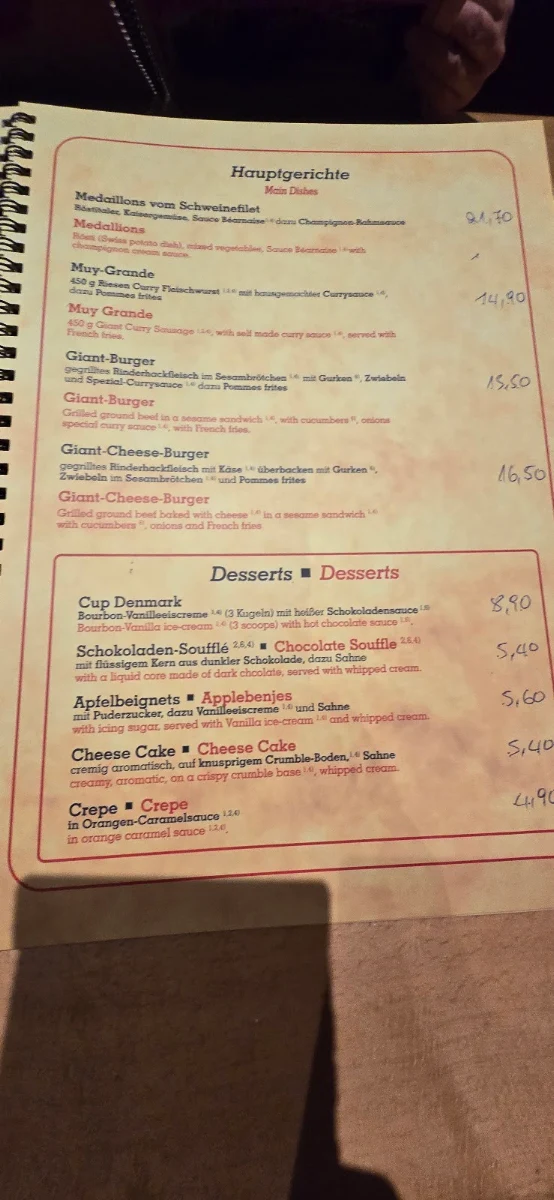 Hauptgerichte
Main Dishes
Medaillons vom Schweinefilet
Röstitaler, Kaisergemüse, Sauce Béarnaise 1,4) dazu Champignon-Rahmsauce
21,70
Medallions
Rösti (Swiss potato dish), mixed vegetables, Sauce Béarnaise 1,4) with
champignon cream sauce.
Muy-Grande
450 g Riesen Curry Fleischwurst mit hausgemachter Currysauce 1,4),
dazu Pommes frites
14,90
Muy Grande
450 g Giant Curry Sausage, with self made curry sauce 1,4), served with
French fries.
Giant-Burger
gegrilltes Rinderhackfleisch im Sesambrötchen 1,4) mit Gurken, Zwiebeln
und Spezial-Currysauce 1,4) dazu Pommes frites
15,50
Giant-Burger
Grilled ground beef in a sesame sandwich 1,4), with cucumbers, onions
special curry sauce 1,4), with French fries.
Giant-Cheese-Burger
gegrilltes Rinderhackfleisch mit Käse 1,4) überbacken mit Gurken,
Zwiebeln im Sesambrötchen 1,4) und Pommes frites
16,50
Giant-Cheese-Burger
Grilled ground beef baked with cheese 1,4) in a sesame sandwich 1,4)
with cucumbers, onions and French fries
Desserts ■ Desserts
Cup Denmark
8,90
Bourbon-Vanilleeiscreme 1,4) (3 Kugeln) mit heißer Schokoladensauce 1,8)
Bourbon-Vanilla ice-cream 1,4) (3 scoops) with hot chocolate sauce 1,8).
Schokoladen-Soufflé 2,6,4) ■ Chocolate Souffle 2,6,4)
5,40
mit flüssigem Kern aus dunkler Schokolade, dazu Sahne
with a liquid core made of dark chcolate, served with whipped cream.
Apfelbeignets ■ Applebenjes
5,60
mit Puderzucker, dazu Vanilleeiscreme 1,4) und Sahne
with icing sugar, served with Vanilla ice-cream 1,4) and whipped cream.
Cheese Cake ■ Cheese Cake
5,40
cremig aromatisch, auf knusprigem Crumble-Boden, 1,4) Sahne
creamy, aromatic, on a crispy crumble base 1,4), whipped cream.
Crepe ■ Crepe
4,90
in Orangen-Caramelsauce 1,2,4)
in orange caramel sauce 1,2,4).